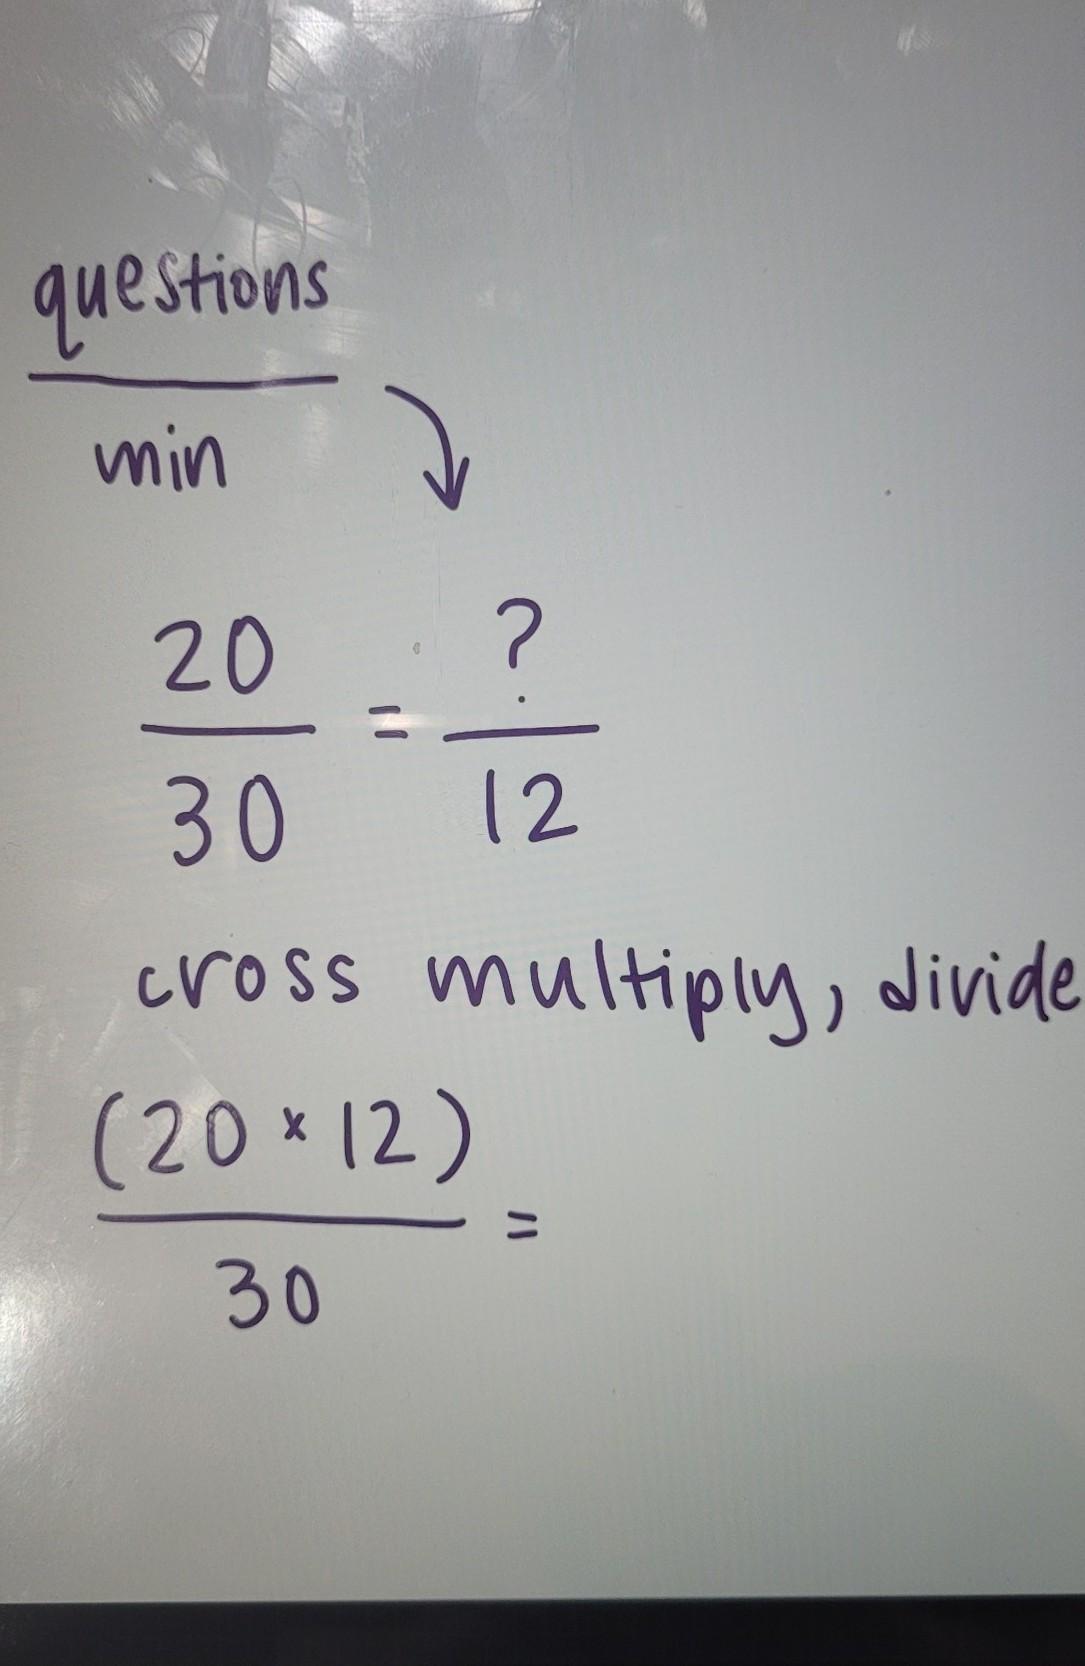 questions
min
20 = ?
30 12
cross multiply, divide
(20 × 12) =
30